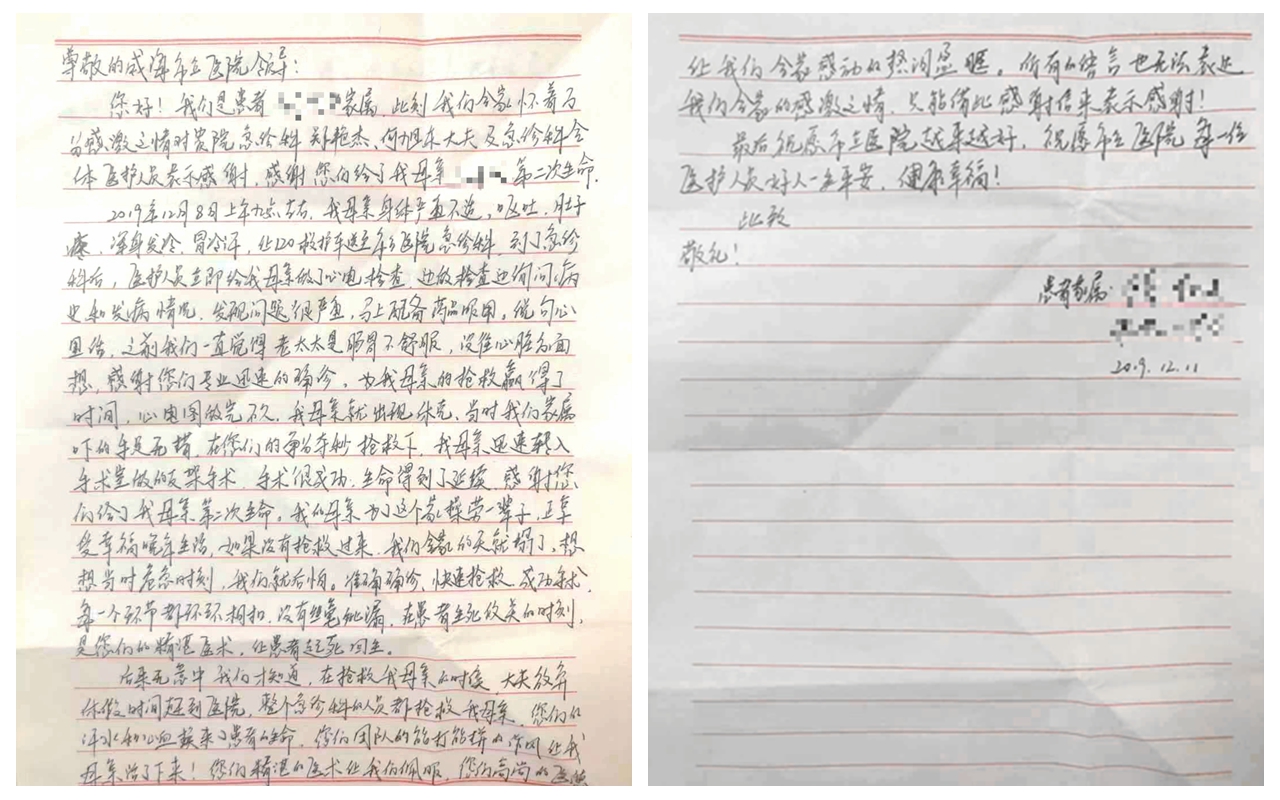 尊敬的威海市立医院领导:
您好!我们是患者 家属,此刻我们全家怀着万
分感激之情对贵院急诊科郑艳杰、何旭东大夫及急诊科全
体医护人员表示感谢,感谢您们给了我母亲 第二次生命.
2019年12月8日上午九点左右,我母亲身体严重不适,呕吐,肚子
疼、浑身发冷、冒冷汗,让120救护车送至市立医院急诊科,到了急诊
科后,医护人员立即给我母亲做了心电检查,边做检查边询问病
史和发病情况,发现问题很严重,马上配备药品服用,说句心
里话,之前我们一直觉得老太太是肠胃不舒服,没往心脏方面
想,感谢您们专业迅速的确诊,为我母亲的抢救赢得了
时间,心电图做完不久,我母亲就出现休克,当时我们家属
吓的手足无措,在您们的争分夺秒抢救下,我母亲迅速转入
手术室做的支架手术,手术很成功,生命得到了延续,感谢您
们给了我母亲第二次生命。我们母亲为了这个家操劳一辈子,正享
受幸福晚年生活,如果没有抢救过来,我们全家的天就塌了,想
想当时危急时刻,我们就后怕。准确确诊、快速抢救、成功手术,
每一个环节都环环相扣,没有丝毫纰漏,在患者生死攸关的时刻,
是您们的精湛医术,让患者起死回生。
后来无意中我们才知道,在抢救我母亲的时候,大夫放弃
休假时间赶到医院,整个急诊科的人员都抢救我母亲,您们的
汗水和心血换来了患者的生命,您们团队的能打能拼的作风让我
母亲活了下来!您们精湛的医术让我们佩服,您们高尚的医德
让我们全家感动的热泪盈眶。所有的语言也无法表达
我们全家的感激之情,只能借此感谢信来表示感谢!
最后祝愿市立医院越来越好,祝愿市立医院每一位
医护人员好人一生平安,健康幸福!
此致
敬礼!
患者家属:
2019.12.11